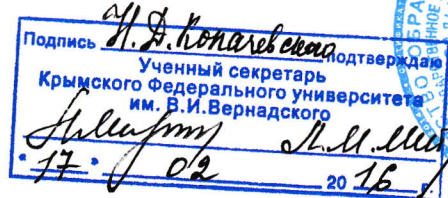 Подпись Н.Д. Копачевского подтверждаю
Ученный секретарь
Крымского Федерального университета
им. В.И.Вернадского
"17" 02 2016